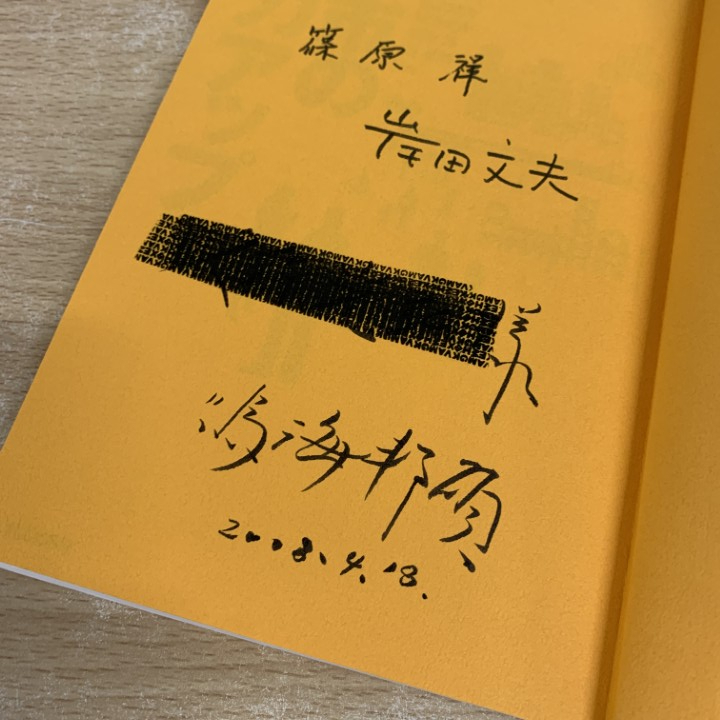 篠原 祥
岸田文夫
鳴海邦碩
2008.4.18.